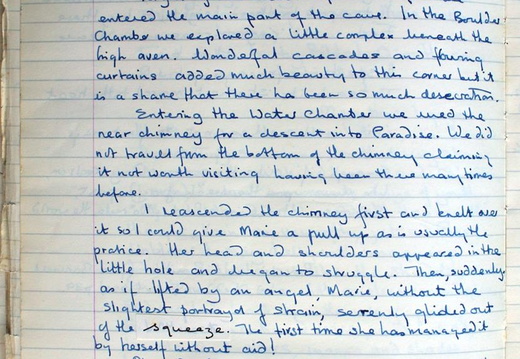 entered the main part of the cave. In the Boulder
Chamber we explored a little complex beneath the
high aven. Wonderful cascades and flowing
curtains added much beauty to this corner but it
is a shame that there has been so much desecration.
Entering the Water Chamber we used the
near chimney for a descent into Paradise. We did
not travel from the bottom of the chimney claiming
it not worth visiting having been there many times
before.
I reascended the chimney first and knelt over
it so I could give Marie a pull up as is usually the
pratice. Her head and shoulders appeared in the
little hole and began to struggle. Then, suddenly
as if lifted by an angel Marie, without the
slightest portrayal of strain, serenly glided out
of the squeeze. The first time she has managed it
by herself without aid!